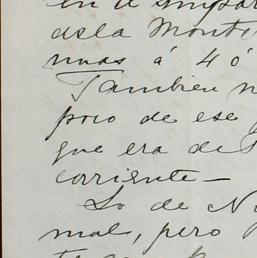 en el
de la Mont
nuas á 4 ó
Tambien
poco de ese
que era de
corriente—
Lo de
mal, pero